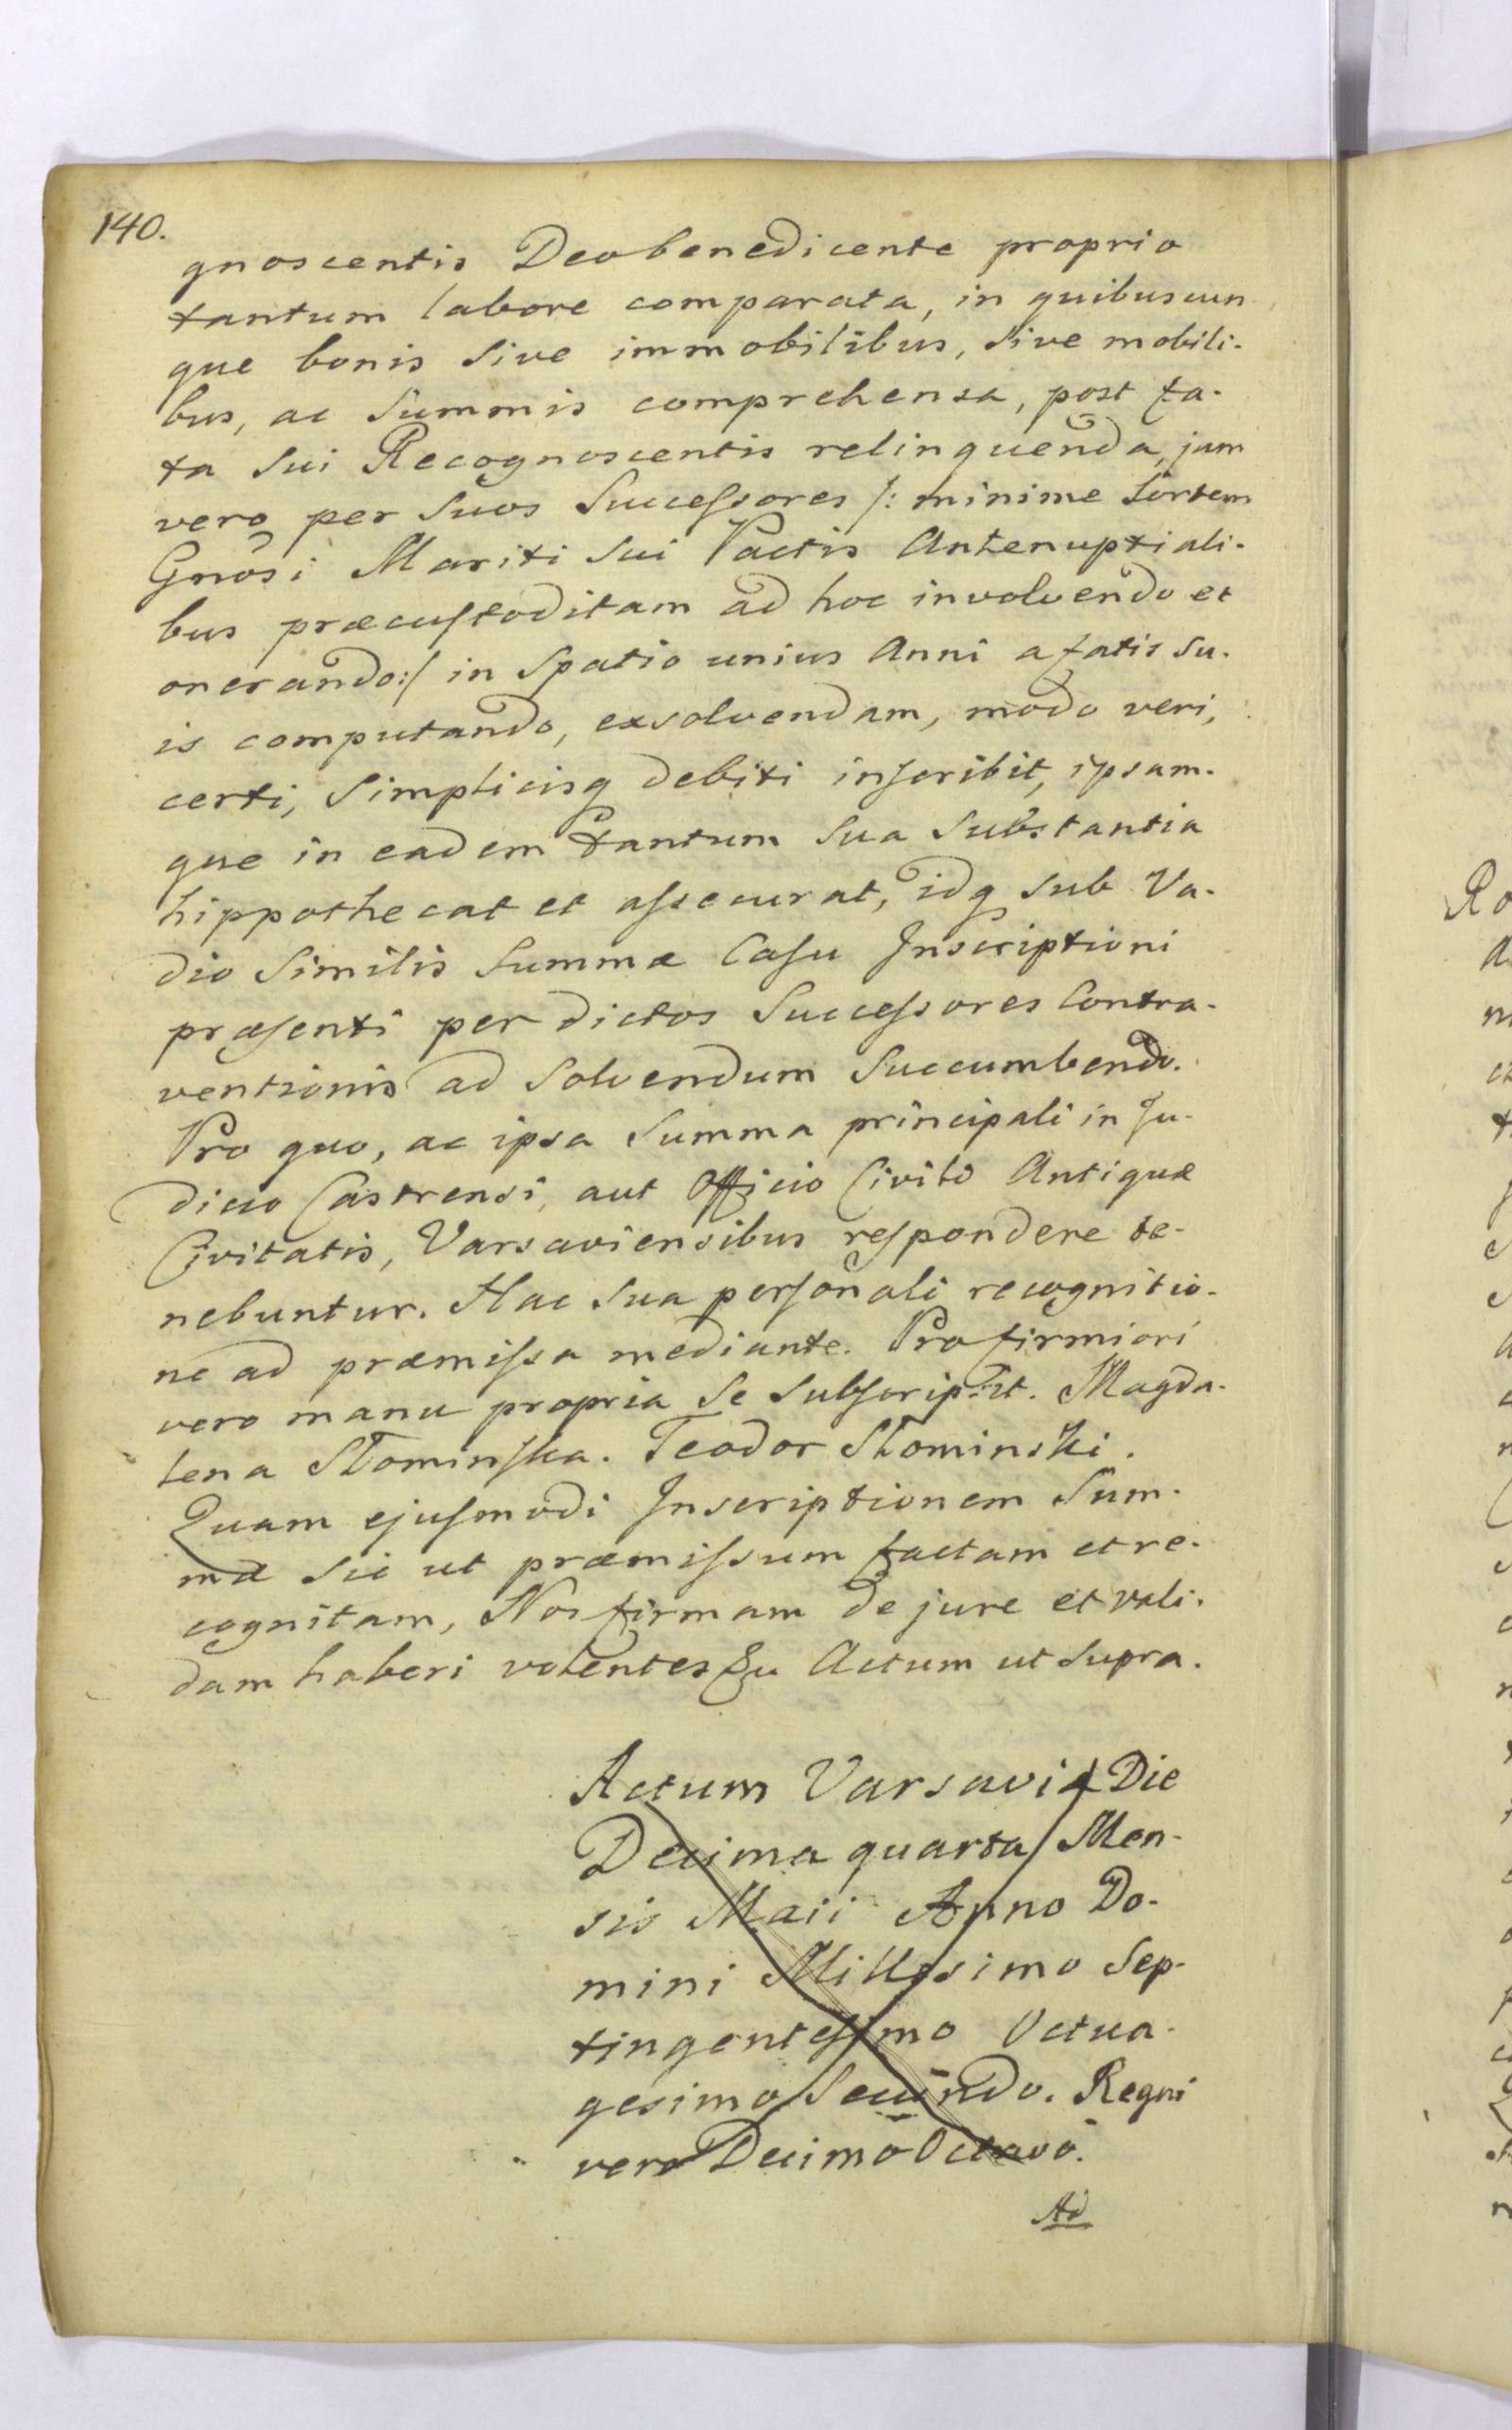 140.
gnoscentis Deo benedicente proprio
tantum labore comparata, in quibuscun
que bonis sive immobilibus, sive mobili-
bus, ac Summis comprehensa, post fa-
ta sui Recognoscentis relinquenda, jam
vero per suos Successores /: minime Sortem
Gnosi Mariti sui Pactis Antenuptiali-
bus præcustoditam ad hoc involvendo et
onerando :/ in Spatio unius Anni a fatis su-
is computando, exsolvendam, modo veri,
certi, Simplicisq debiti inscribit, ipsam-
que in eadem tantum sua substantia
hippothecat et assecurat, idq sub Va-
dio Similis Summæ Casu Inscriptioni
præsenti per dictos Successores Contra-
ventionis ad Solvendum Succumbendo.
Pro quo, ac ipsa Summa principali in Ju-
dicio Castrensi, aut Officio Civili Antiquæ
Civitatis, Varsaviensibus respondere te-
nebuntur. Hac sua personali recognitio-
ne ad præmissa mediante. Pro firmiori
vero manu propria se subscripsit. Magda-
lena Słominska. Teodor Słominski.
Quam ejusmodi Inscriptionem Sum-
mæ sic ut præmissum factam et re-
cognitam, Nos firmam de jure et vali-
dam haberi volentes Actum ut supra.
Actum Varsaviæ Die
Decima quarta Men-
sis Maii Anno Do-
mini Millesimo Sep-
tingentesimo Octua-
gesimo Secundo. Regni
vero Decimo Octavo.
Ad
Ro